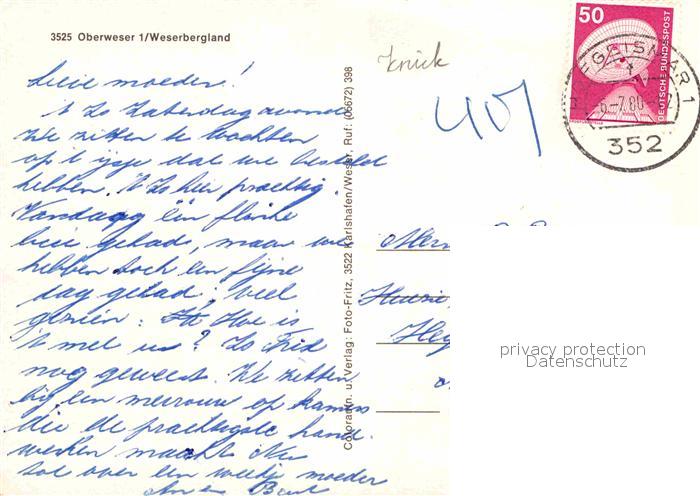 3525 Oberweser 1/Weserbergland
Lieve moeder!
't Is Zaterdagavond
We zitten te wachten
op 't ijsje dat we besteld
hebben. 't Is hier prachtig.
Vandaag één flinke
bui gehad, maar we
hebben toch een fijne
dag gehad; veel
gezien. Hoe is
't met us? Is Fried
nog geweest. We zitten
bij een mevrouw op kamers
die de prachtigste hand-
werken maakt. Nu
tot over een weekje moeder
Colorankn. u. Verlag: Foto-Fritz, 3522 Karlshafen/Weser, Ruf: (05672) 398
knick
407
50
DEUTSCHE BUNDESPOST
HOFGEISMAR 1
-7.80-
352
privacy protection
Datenschutz